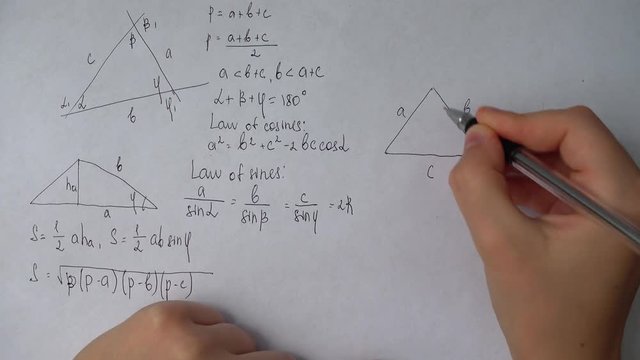 β β₁
c a
α₁ α φ φ₁
b
P = a+b+c
p = a+b+c / 2
a < b+c, b < a+c
α + β + φ = 180°
Law of cosines:
a² = b² + c² - 2bc cosα
Law of sines:
a / sinα = b / sinβ = c / sinφ = 2R
hₐ b
a φ
S = 1/2 ahₐ, S = 1/2 ab sinφ
S = √p(p-a)(p-b)(p-c)
a b
c